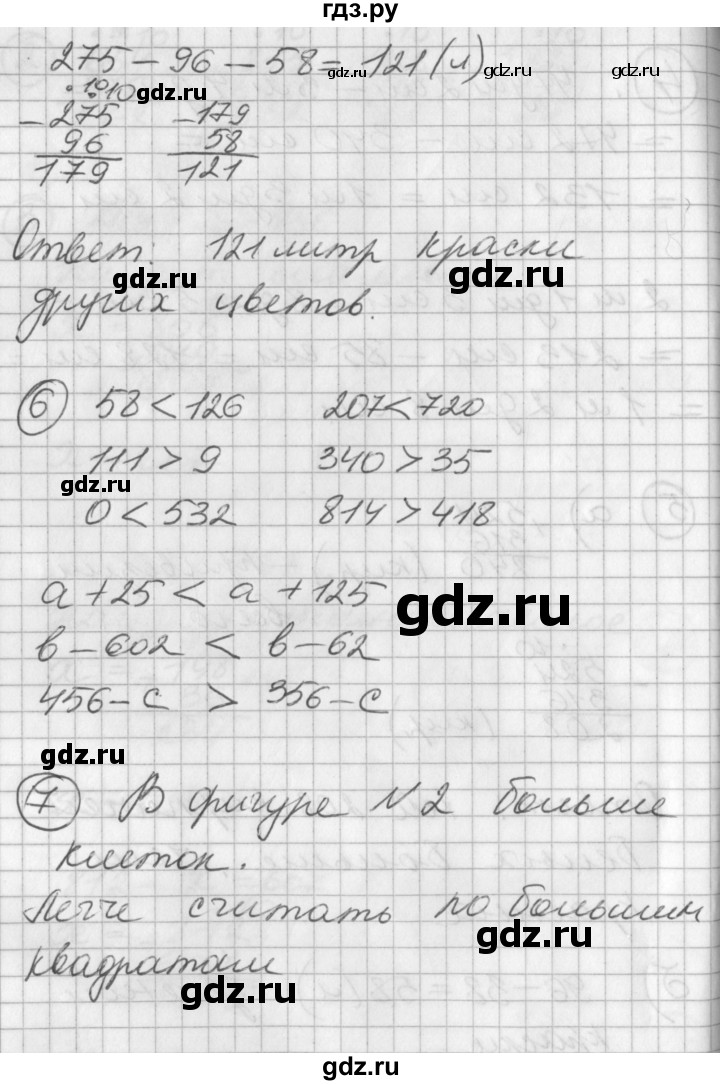 гдз.ру
275 - 96 - 58 = 121 (л)
gdz.ru
gdz.ru
10 10
- 275   - 179
gdz.ru
96   58
179   121
Ответ: 121 литр краски
gdz.ru
gdz.ru
других цветов.
6 58 < 126   207 < 720
111 > 9   340 > 35
gdz.ru
0 < 532   814 > 418
a + 25 < a + 125
gdz.ru
в - 602 < в - 62
456 - с > 356 - с
gdz.ru
7 В фигуре №2 больше
клеток.
Легче считать по большим
gdz.ru
квадратам
gdz.ru
gdz.ru